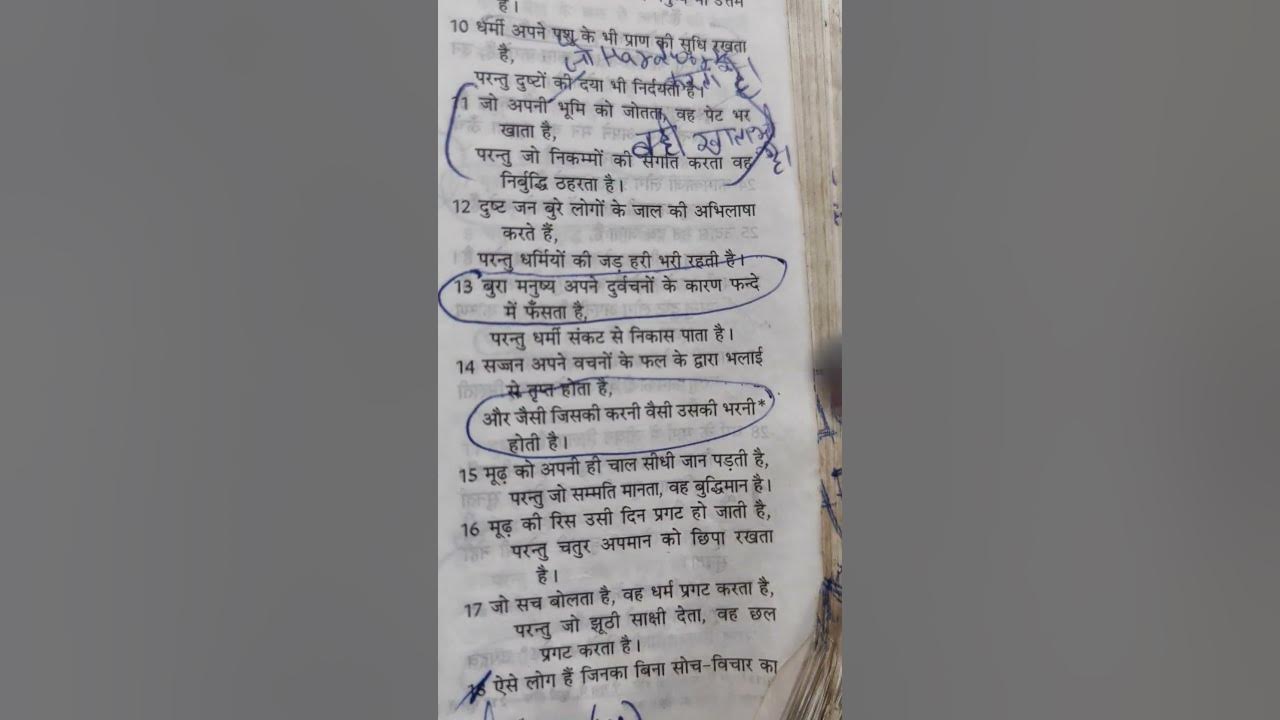 है।
10 धर्मी अपने पशु के भी प्राण की सुधि रखता
है,
जो Hard work करता है।
परन्तु दुष्टों की दया भी निर्दयता है।
11 जो अपनी भूमि को जोतता, वह पेट भर
खाता है,
वही खाता है।
परन्तु जो निकम्मों की संगति करता वह
निर्बुद्धि ठहरता है।
12 दुष्ट जन बुरे लोगों के जाल की अभिलाषा
करते हैं,
परन्तु धर्मियों की जड़ हरी भरी रहती है।
13 बुरा मनुष्य अपने दुर्वचनों के कारण फन्दे
में फँसता है,
परन्तु धर्मी संकट से निकास पाता है।
14 सज्जन अपने वचनों के फल के द्वारा भलाई
से तृप्त होता है,
और जैसी जिसकी करनी वैसी उसकी भरनी*
होती है।
15 मूढ़ को अपनी ही चाल सीधी जान पड़ती है,
परन्तु जो सम्मति मानता, वह बुद्धिमान है।
16 मूढ़ की रिस उसी दिन प्रगट हो जाती है,
परन्तु चतुर अपमान को छिपा रखता
है।
17 जो सच बोलता है, वह धर्म प्रगट करता है,
परन्तु जो झूठी साक्षी देता, वह छल
प्रगट करता है।
18 ऐसे लोग हैं जिनका बिना सोच-विचार का